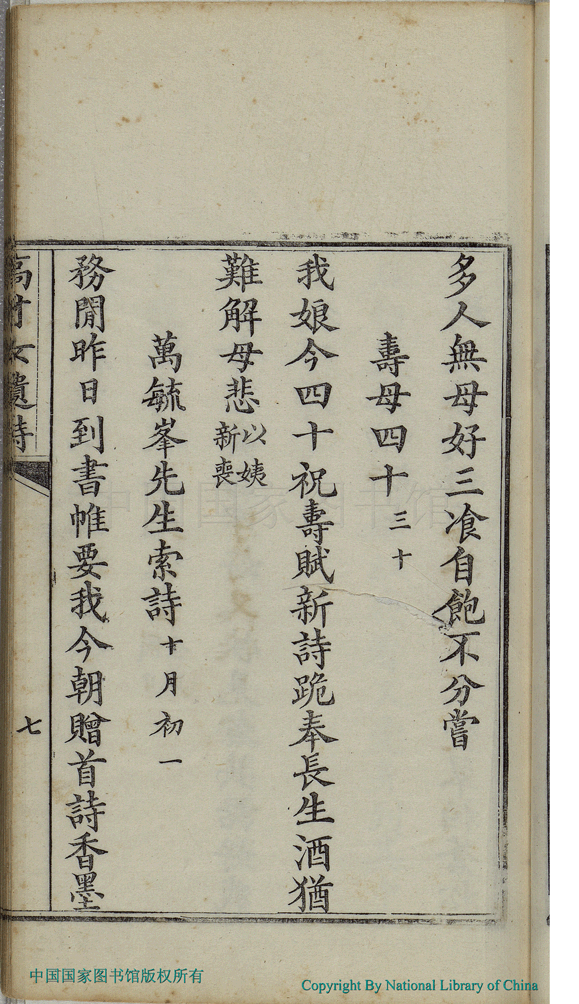 多人無母好三飡自飽不分嘗
壽母四十 三十
我娘今四十祝壽賦新詩跪奉長生酒猶
難解母悲以姨新喪
萬毓峯先生索詩 十月初一
務閒昨日到書帷要我今朝贈首詩香墨
竹女遺詩
七
中国国家图书馆
中国国家图书馆版权所有
Copyright By National Library of China